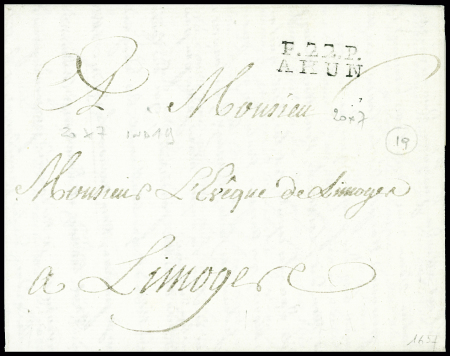 P.22.P.
AHUN
A Monsieur
20x7
20x7 IND 19
19
Monsieur L'Evêque de Limoges
a Limoges